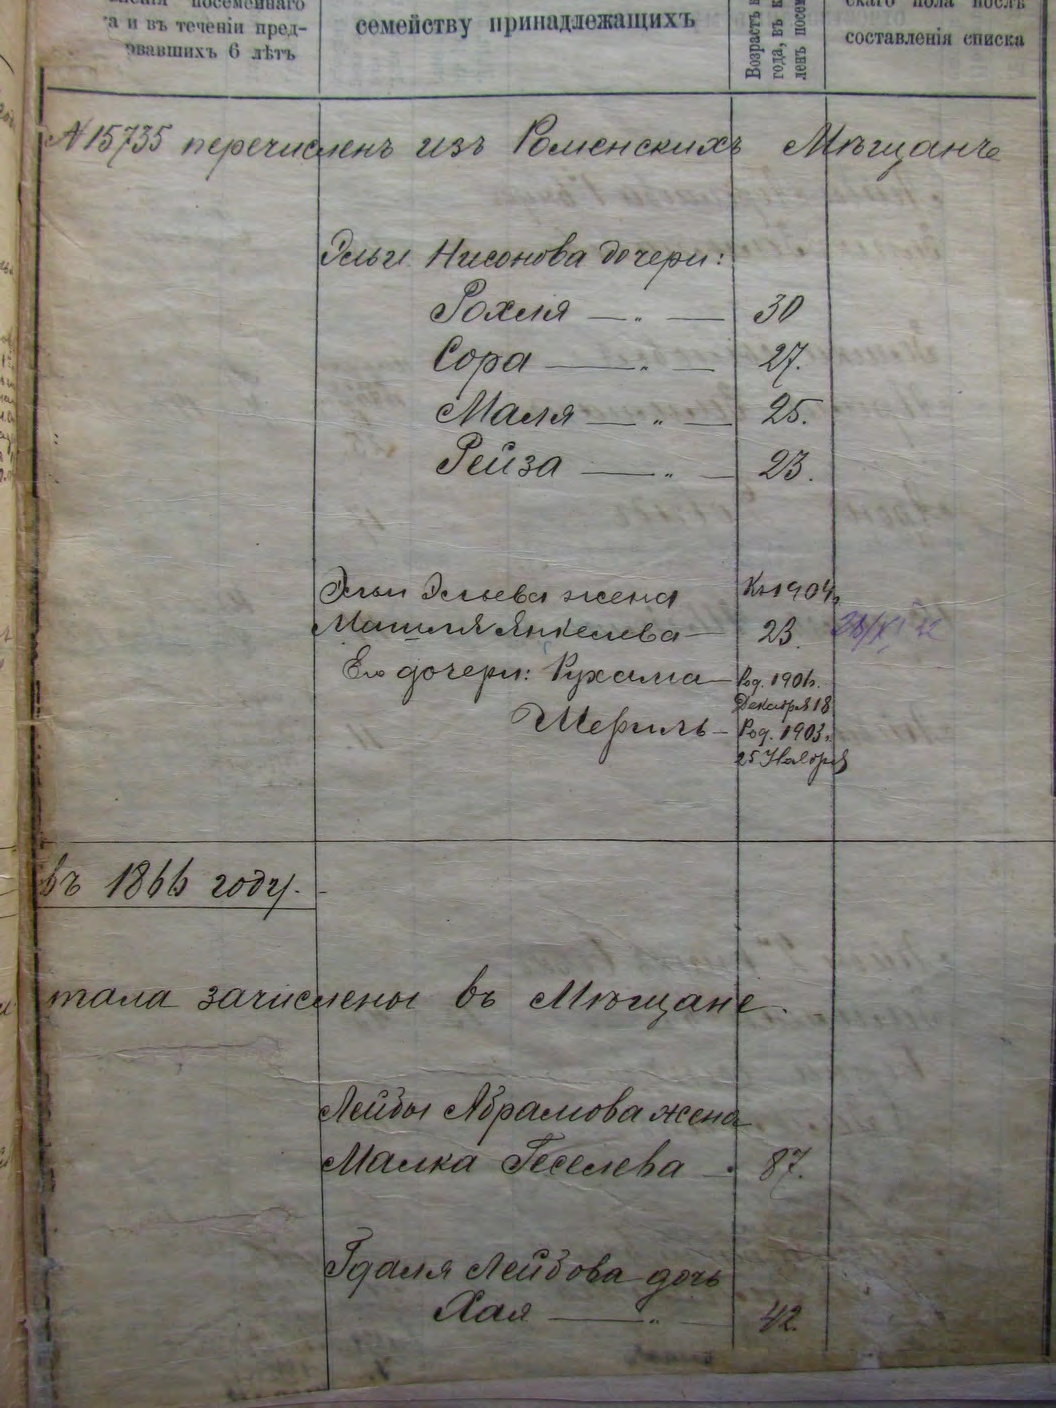 посемейнаго
а и въ теченіи пред-
овавшихъ 6 лѣтъ
семейству принадлежащихъ
Возрастъ
года, въ
ленъ посем
скаго пола послѣ
составленія списка
№ 15735 перечисленъ изъ Роменскихъ Мѣщанъ
Эльи Нисонова дочери:
Рохля — „ — 30
Сора — „ — 27.
Маля — „ — 25.
Рейза — „ — 23.
Эльи Эльева жена Къ 1904 г
Янкелева — 23.
Его дочери: Рухама — Род. 1901 г.
Декабря 18
Род. 1903 г.
25 Ноября
въ 1866 году.
тала зачислены въ Мѣщане.
Лейбы Абрамова жена
Малка Геселева — 87.
Гдаля Лейбова дочь
Хая — „ — 42.